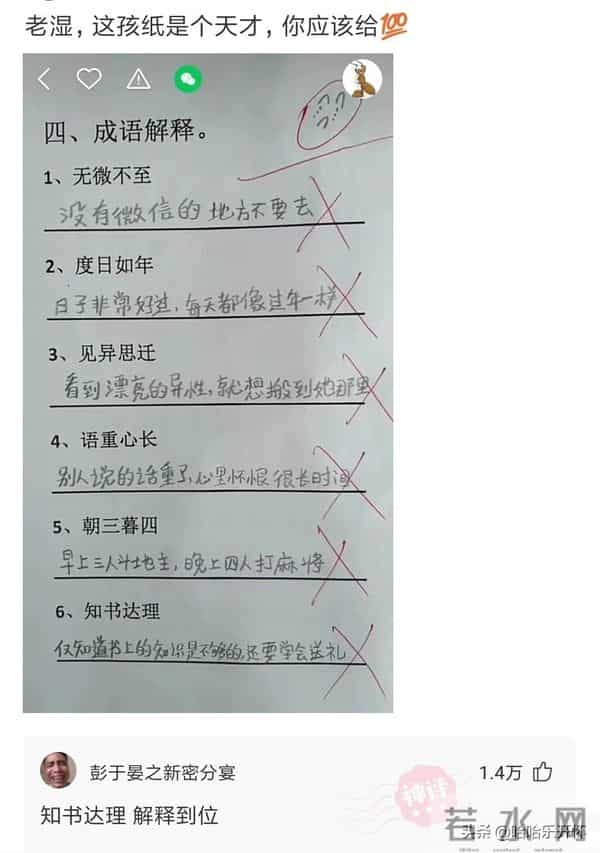 老湿，这孩纸是个天才，你应该给💯
四、成语解释。
1、无微不至
没有微信的地方不要去
2、度日如年
日子非常好过，每天都像过年一样
3、见异思迁
看到漂亮的异性，就想搬到她那里
4、语重心长
别人说的话重了，心里怀恨很长时间
5、朝三暮四
早上三人斗地主，晚上四人打麻将
6、知书达理
仅知道书上的知识是不够的，还要学会送礼
彭于晏之新密分宴
1.4万
知书达理 解释到位
神评
若水网